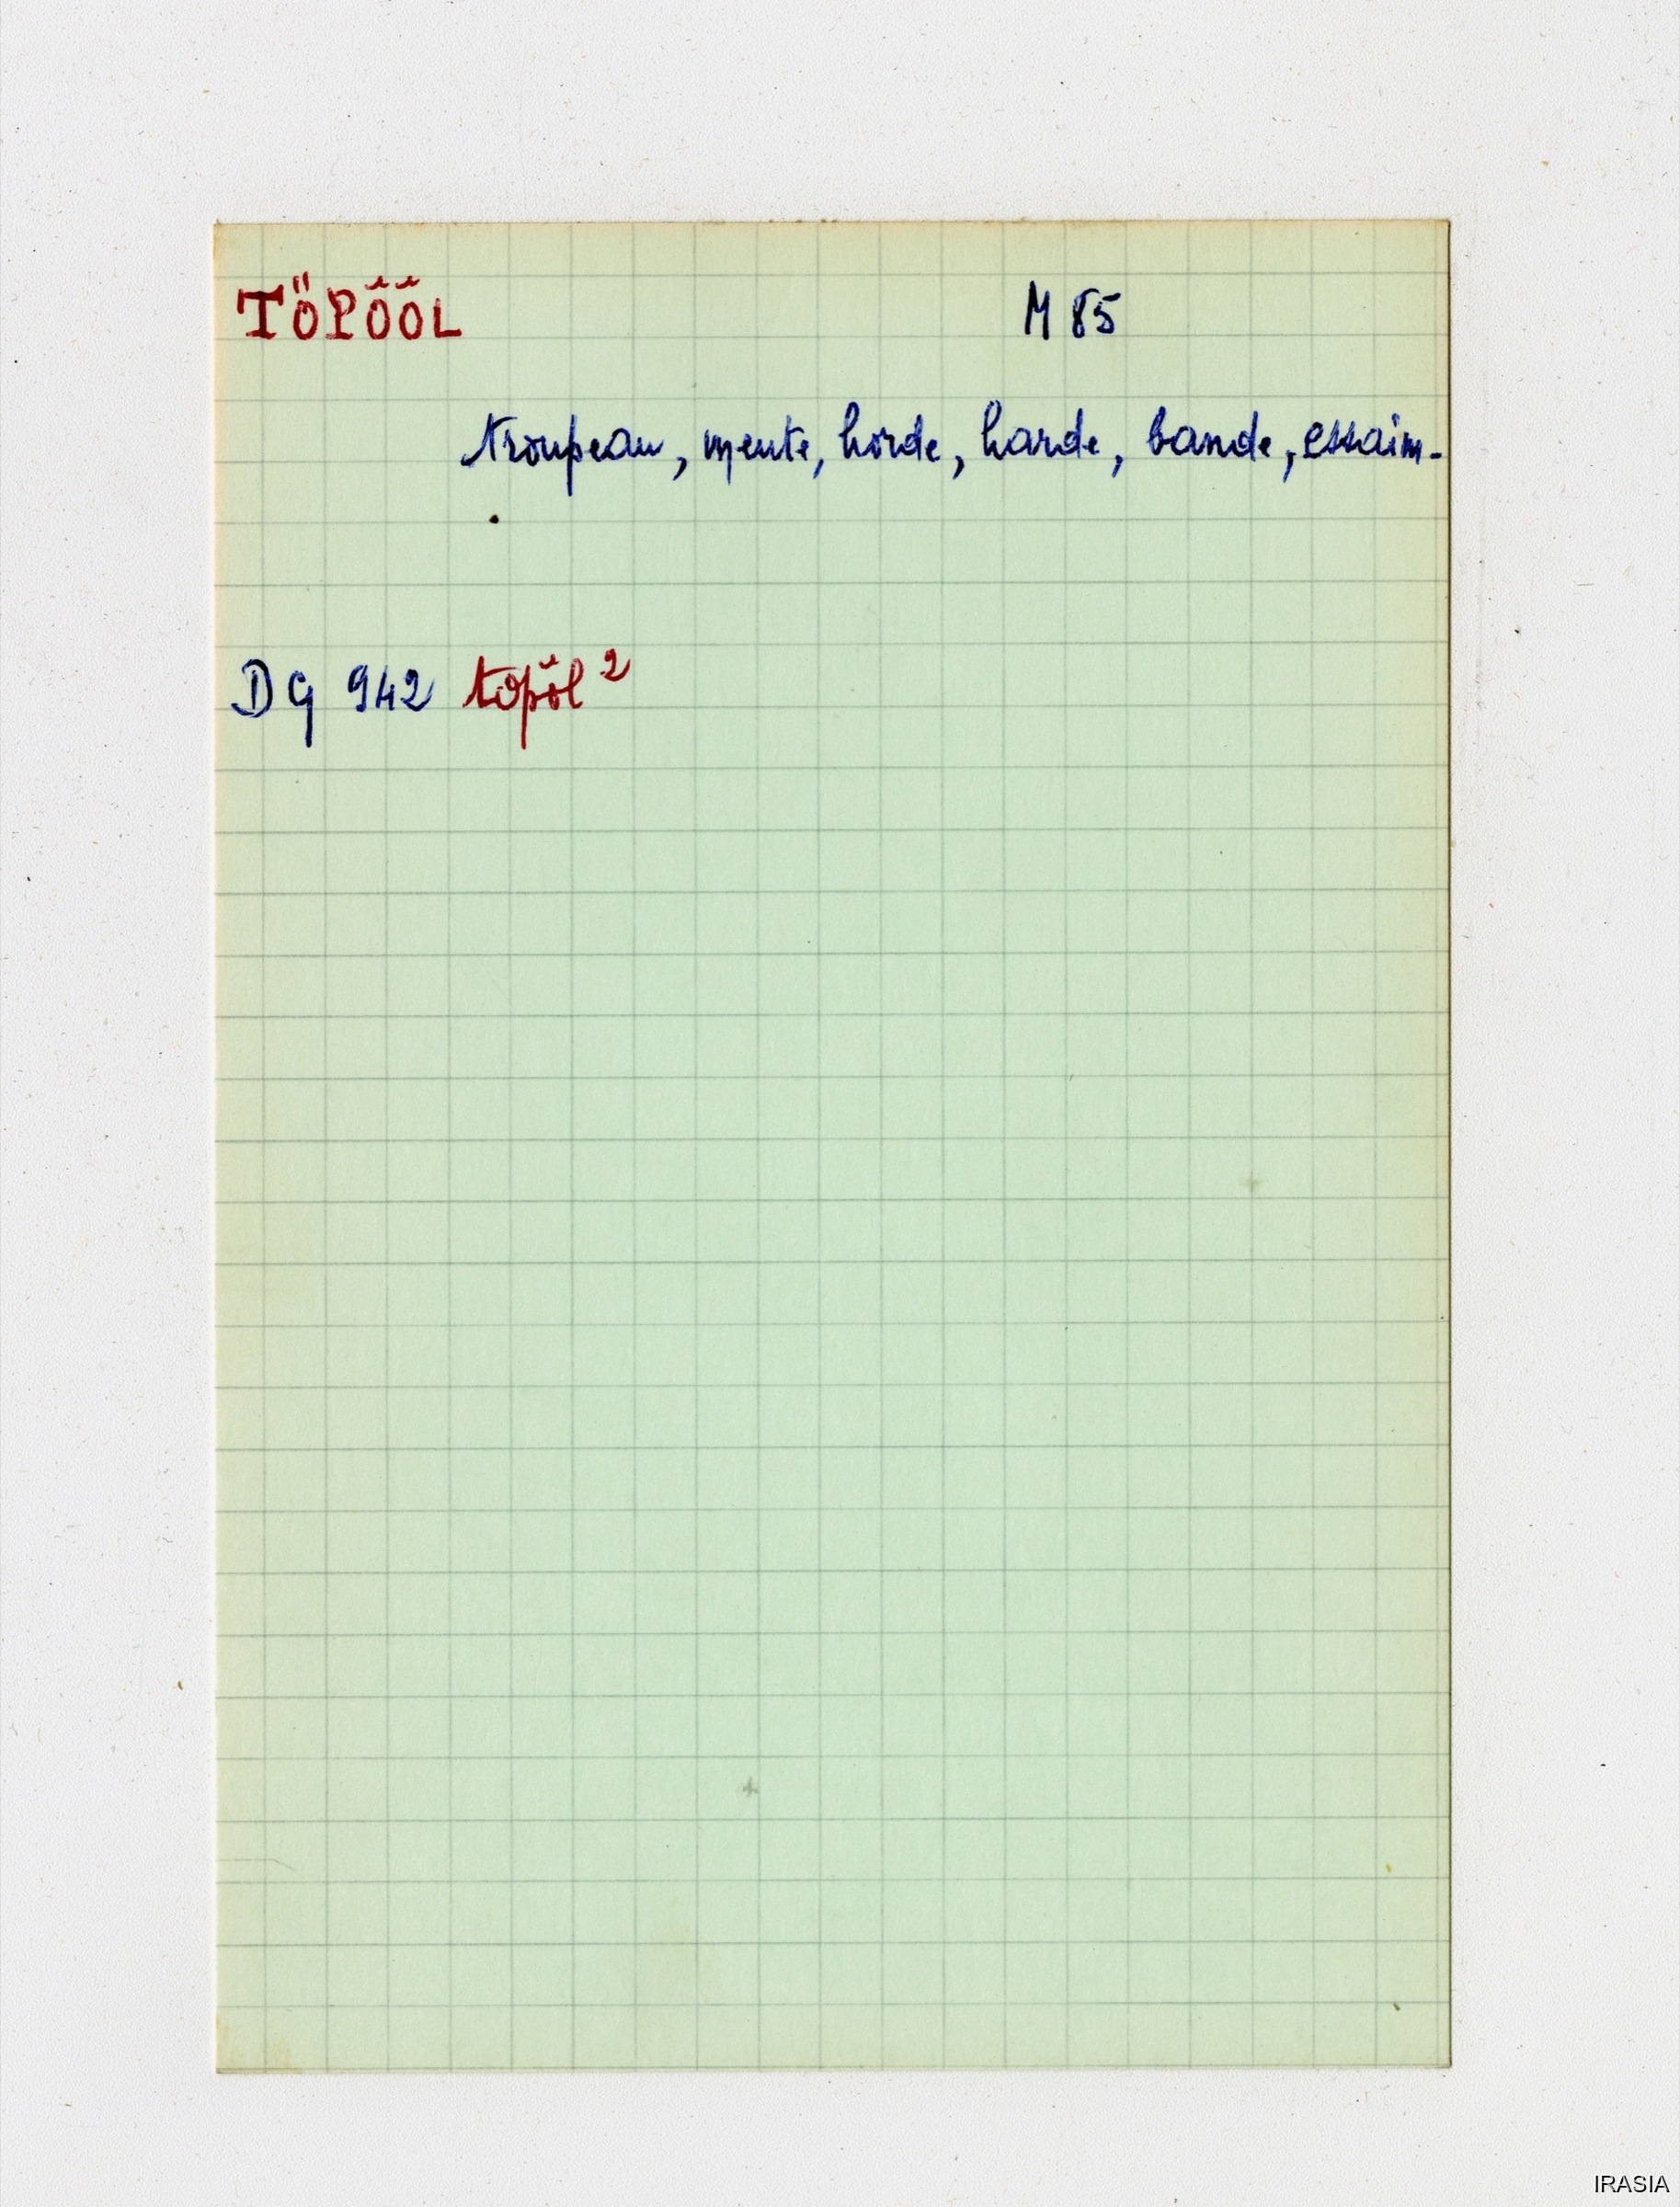 TÖPÔÔL M 85
troupeau, meute, horde, harde, bande, essaim.
DG 942 topŏl²
IRASIA